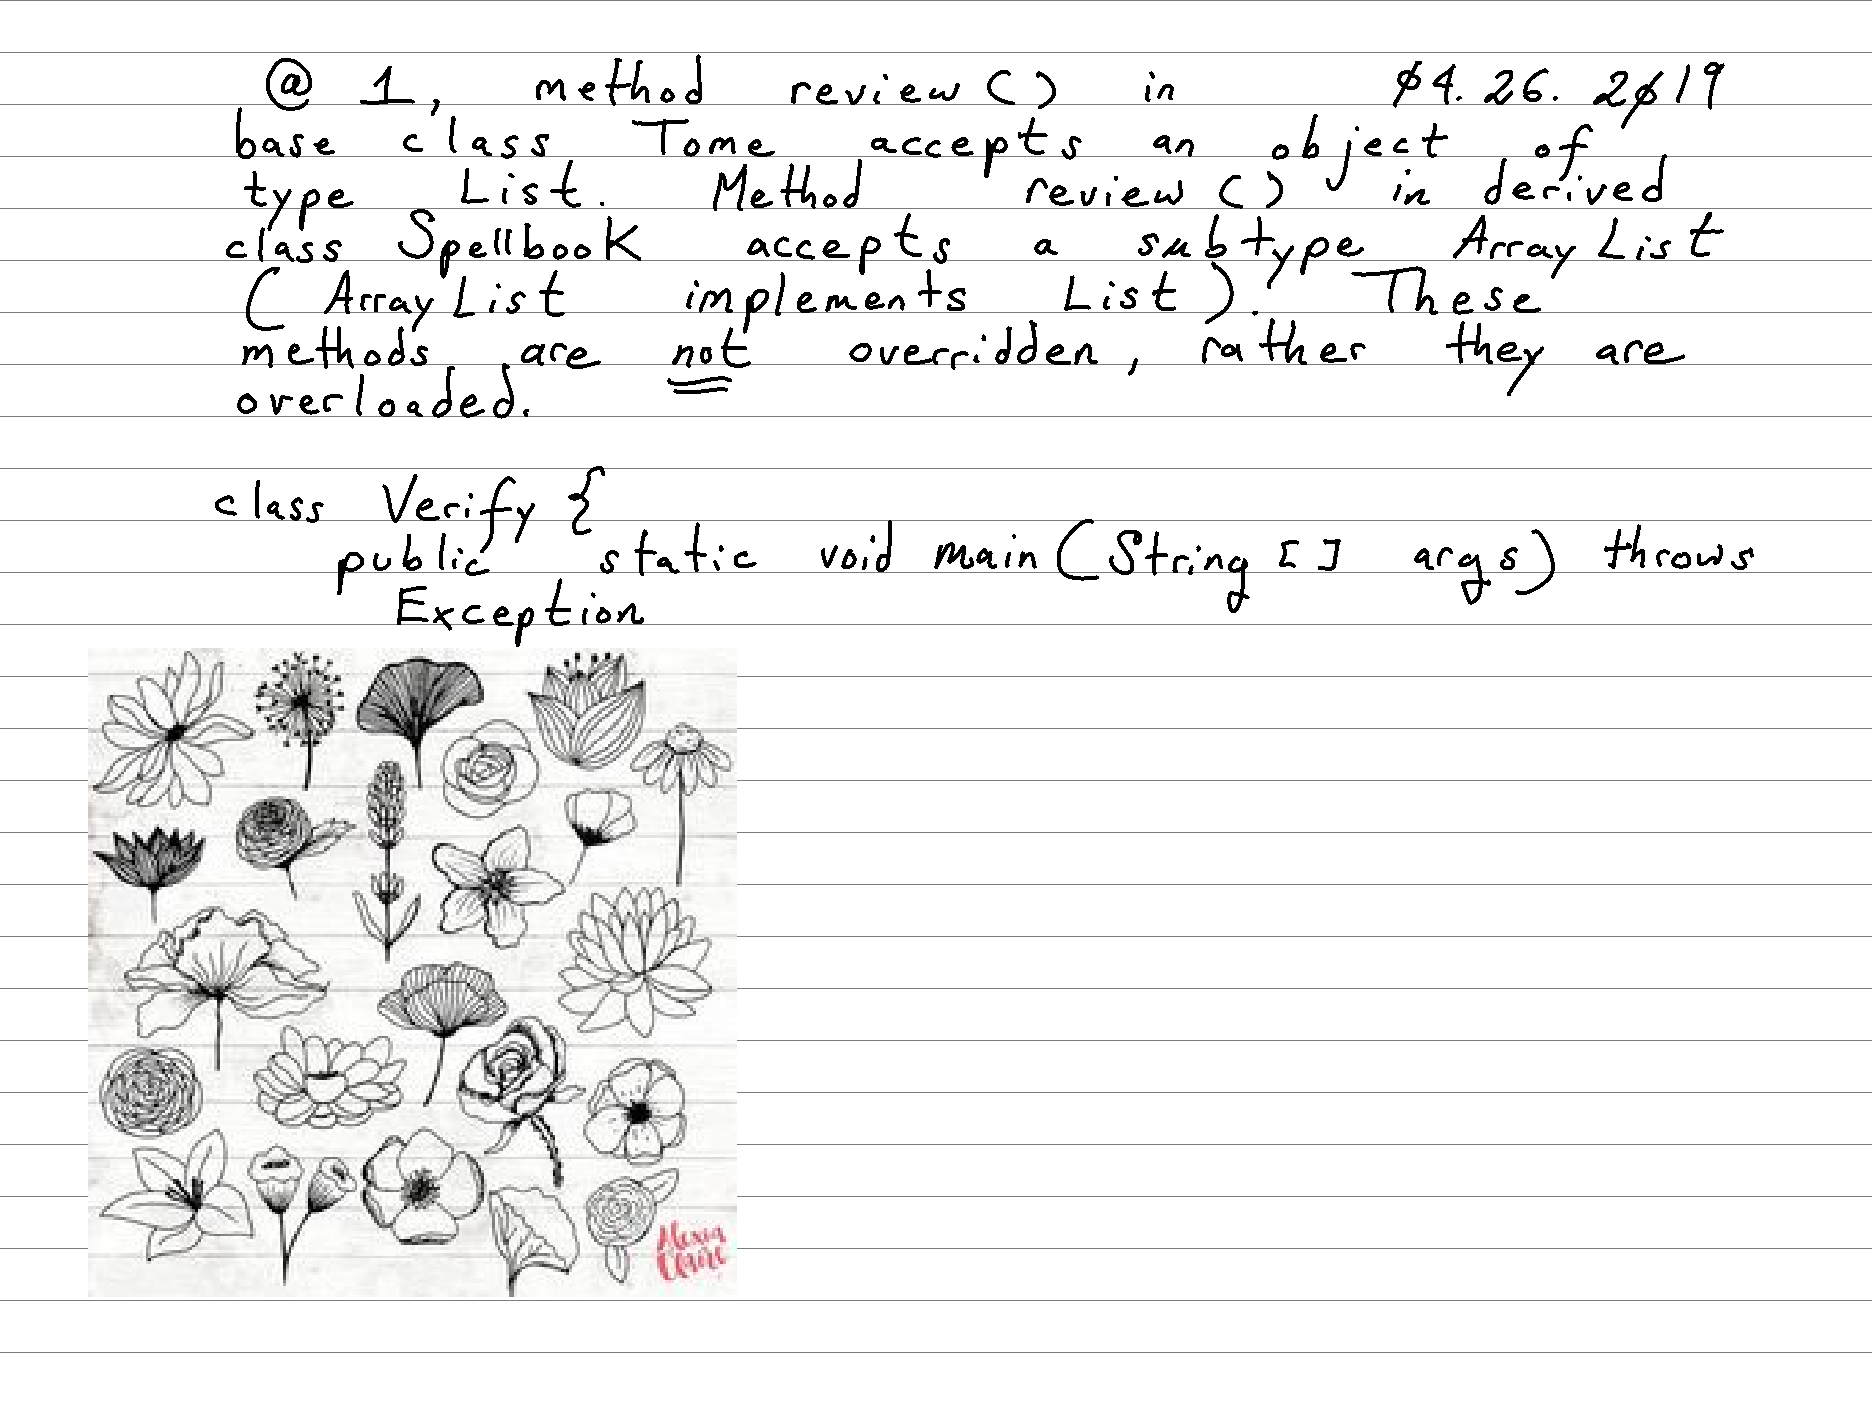 @ 1, method review() in 04.26.2019
base class Tome accepts an object of
type List. Method review() in derived
class Spellbook accepts a subtype ArrayList
(ArrayList implements List). These
methods are not overridden, rather they are
overloaded.
class Verify {
public static void main(String[] args) throws
Exception
Alexia
Claire